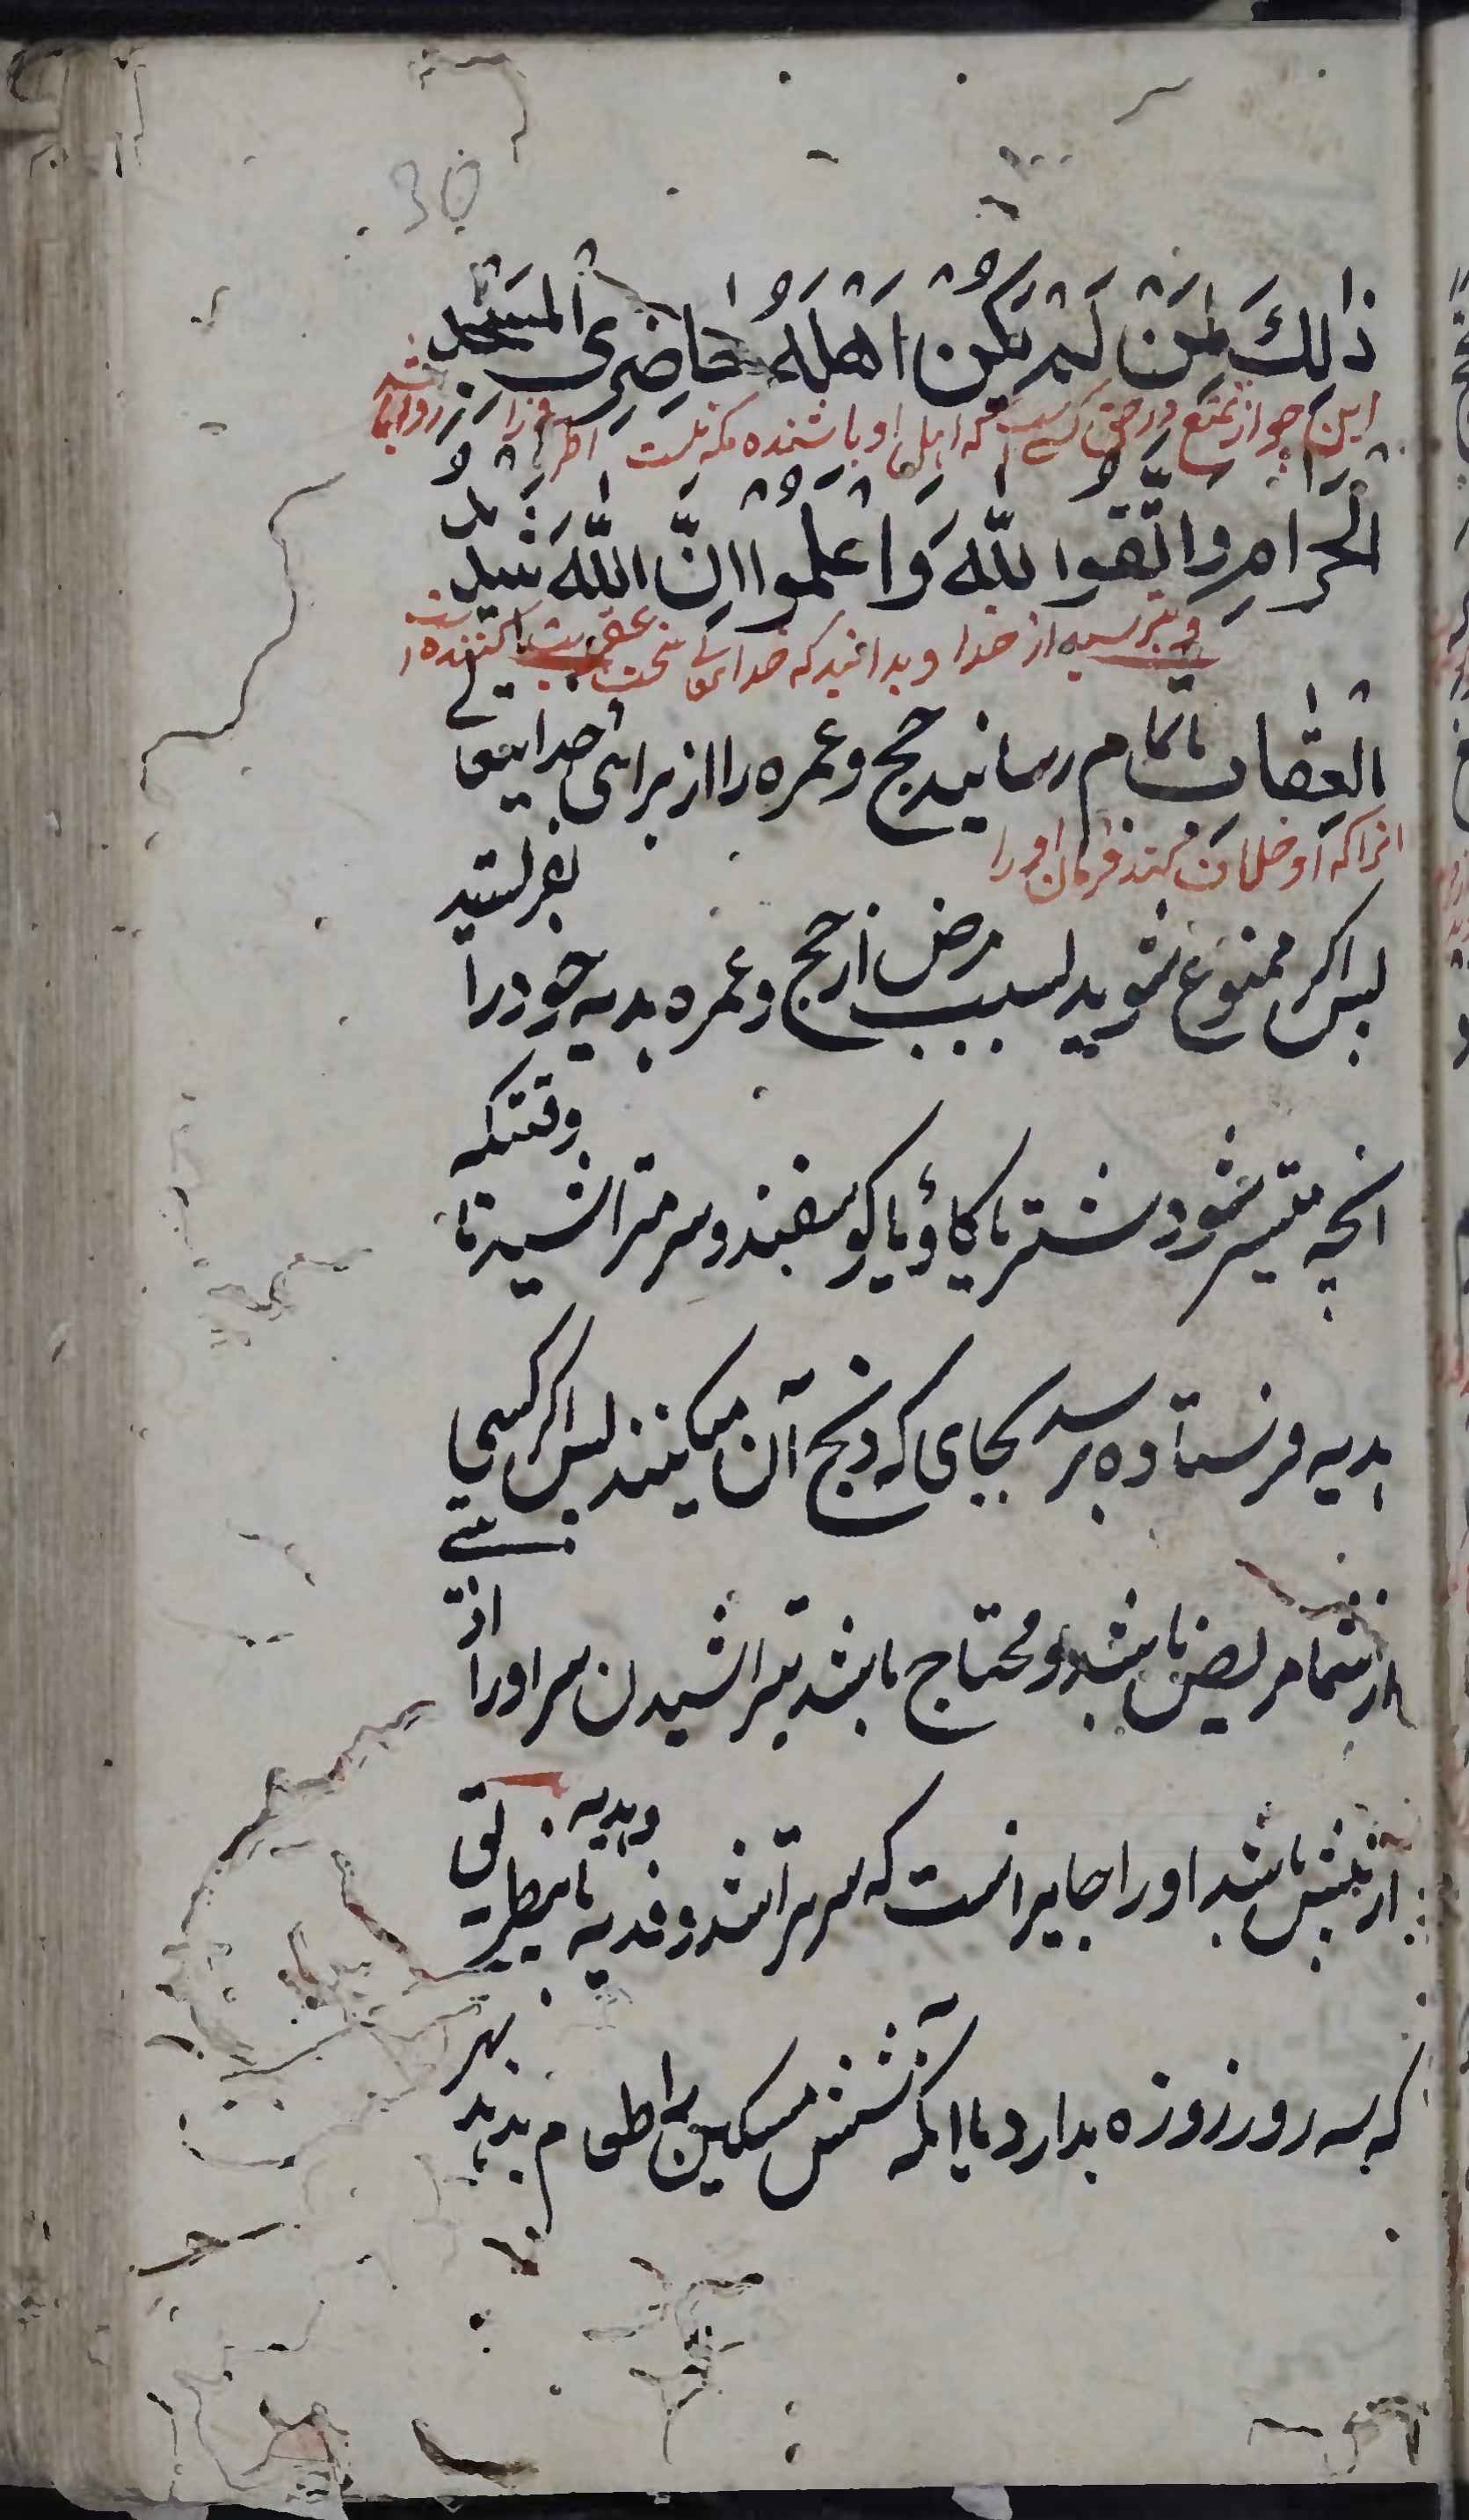 30
ذٰلِكَ لِمَنْ لَمْ يَكُنْ اَهْلُهُ حَاضِرِى الْمَسْجِدِ
این جواز تمتع در حق کسے است که اهل او باشنده مکه نیست
الْحَرَامِ وَاتَّقُوا اللّٰهَ وَاعْلَمُوْا اِنَّ اللّٰهَ شَدِيْدُ
و بترسید از خدا و بدانید که خدای تعالی سخت عقوبت کننده است
الْعِقَابِ باتمام رسانید حج و عمره را از برای خدایتعالے
انرا که او خلاف کند فرمان او را
پس اکر ممنوع شوید بسبب مرض از حج و عمره هدیه خود را بفرستید
انچه میسر شود شتر یا کاؤ یا کوسفند و سر متراشید تا وقتیکه
هدیه فرستاده برسد بجای که ذبح آن میکنند پس اکر کسی
از شما مریض باشد و محتاج باشد بتراشیدن سر او را اذیتے
از شپش باشد او را جایز است که سر بتراشد و فدیه بدهد باینطریق
که سه روز روزه بدارد یا انکه شش مسکین را طعام بدهد بهر